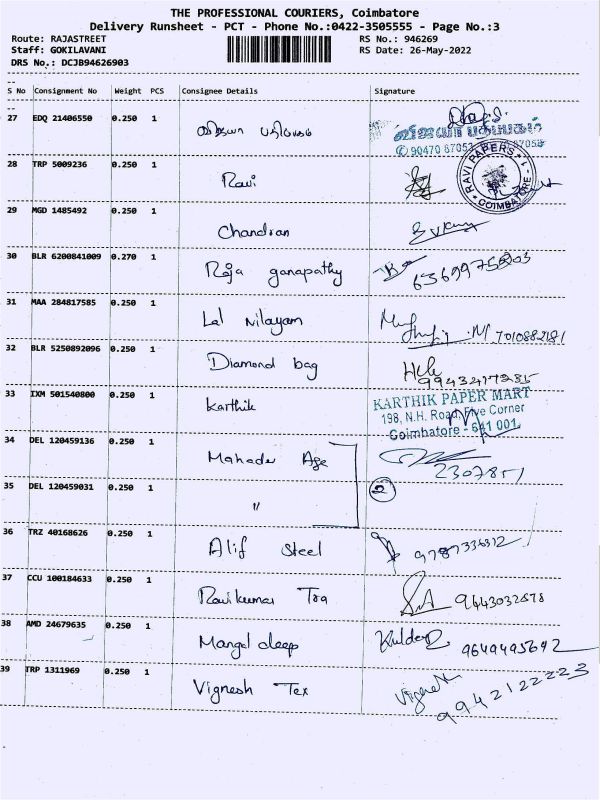 THE PROFESSIONAL COURIERS, Coimbatore
Delivery Runsheet - PCT - Phone No.:0422-3505555 - Page No.:3
Route: RAJASTREET RS No.: 946269
Staff: GOKILAVANI RS Date: 26-May-2022
DRS No.: DCJB94626903
S No Consignment No Weight PCS Consignee Details Signature
27 EDQ 21406550 0.250 1
விஜயா பதிப்பகம்
✆ 90470 87053
28 TRP 5009236 0.250 1 Ravi
RAVI PAPERS
COIMBATORE - 1
29 MGD 1485492 0.250 1 Chandran
30 BLR 6200841009 0.270 1 Raja ganapathy
31 MAA 284817585 0.250 1 Lal Nilayam 7010882181
32 BLR 5250892096 0.250 1 Diamond bag 9943417235
33 IXM 501540800 0.250 1 Karthik
KARTHIK PAPER MART
198, N.H. Road, Five Corner
Coimbatore - 641 001
34 DEL 120459136 0.250 1 Mahadev Age 2307851
35 DEL 120459031 0.250 1 " 2
36 TRZ 40168626 0.250 1 Alif Steel
37 CCU 100184633 0.250 1 Ravikumar Tra 9443032878
38 AMD 24679635 0.250 1 Mangal deep Kuldeep 9649495692
39 TRP 1311969 0.250 1 Vignesh Tex Vignesh 9942122223